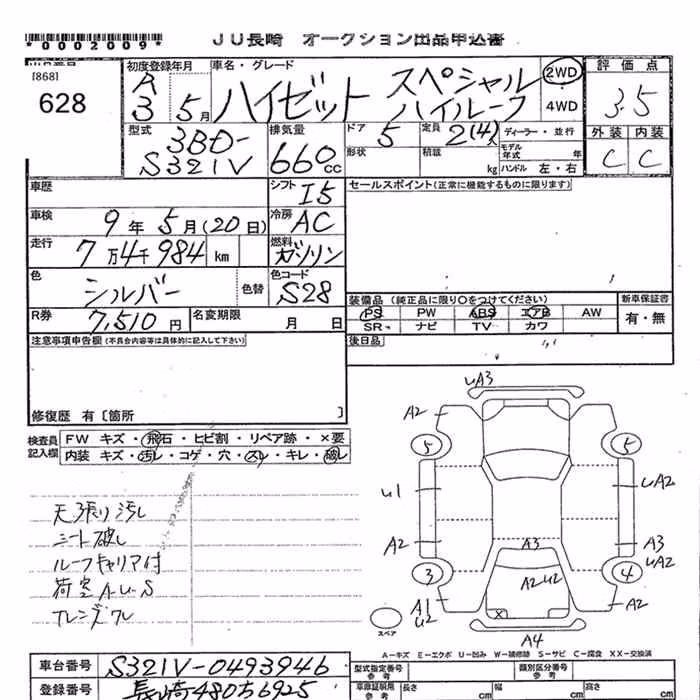 *0002009* JU長崎 オークション出品申込書
[868]
628
初度登録年月 車名・グレード 評価点
R3 5月 ハイゼット スペシャル ハイルーフ 2WD 4WD 3.5
型式 3BD-S321V 排気量 660cc ドア 5 定員 2(4)人 ディーラー・並行 外装 内装
形状 積載 kg モデル年式 年 ハンドル 左・右 C C
車歴 シフト I5 セールスポイント(正常に機能するものに限ります)
車検 9年5月(20日) 冷房 AC
走行 7万4千984 km 燃料 ガソリン
色 シルバー 色替 色コード S28
装備品(純正品に限り○をつけてください) 新車保証書
R券 7,510円 名変期限 月 日 PS PW ABS エアB AW 有・無
SR ナビ TV カワ
注意事項申告欄(不具合内容等は具体的に記入して下さい) 後日品
修復歴 有〔箇所 〕
検査員記入欄 FW キズ・飛石・ヒビ割・リペア跡・×要
内装 キズ・汚レ・コゲ・穴・スレ・キレ・破レ
天張り汚し
シート破し
ルーフキャリア付
荷室A・U・S
uA3
A2
5 5
u1 uA2
A2 A3 A3
uA2
3 A2 u2 4
A1 u2 X A2
スペア A4
A-キズ E-エクボ U-凹み W-補修跡 S-サビ C-腐食 XX-交換済
車台番号 S321V-0493946 型式指定番号 参考 類別区分番号 参考
登録番号 長崎480さ6925 車庫証明用 参考 長さ cm 幅 cm 高さ cm